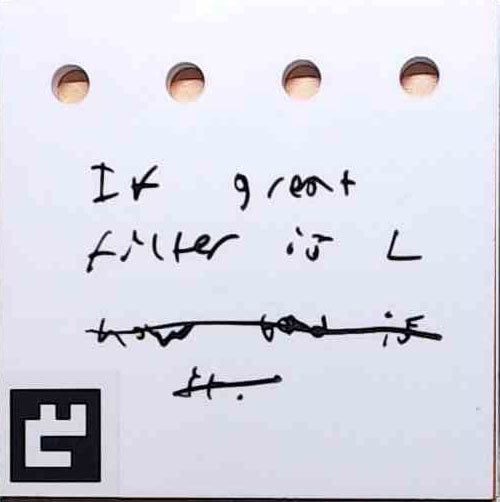 If great
filter is L
how bad is
it.